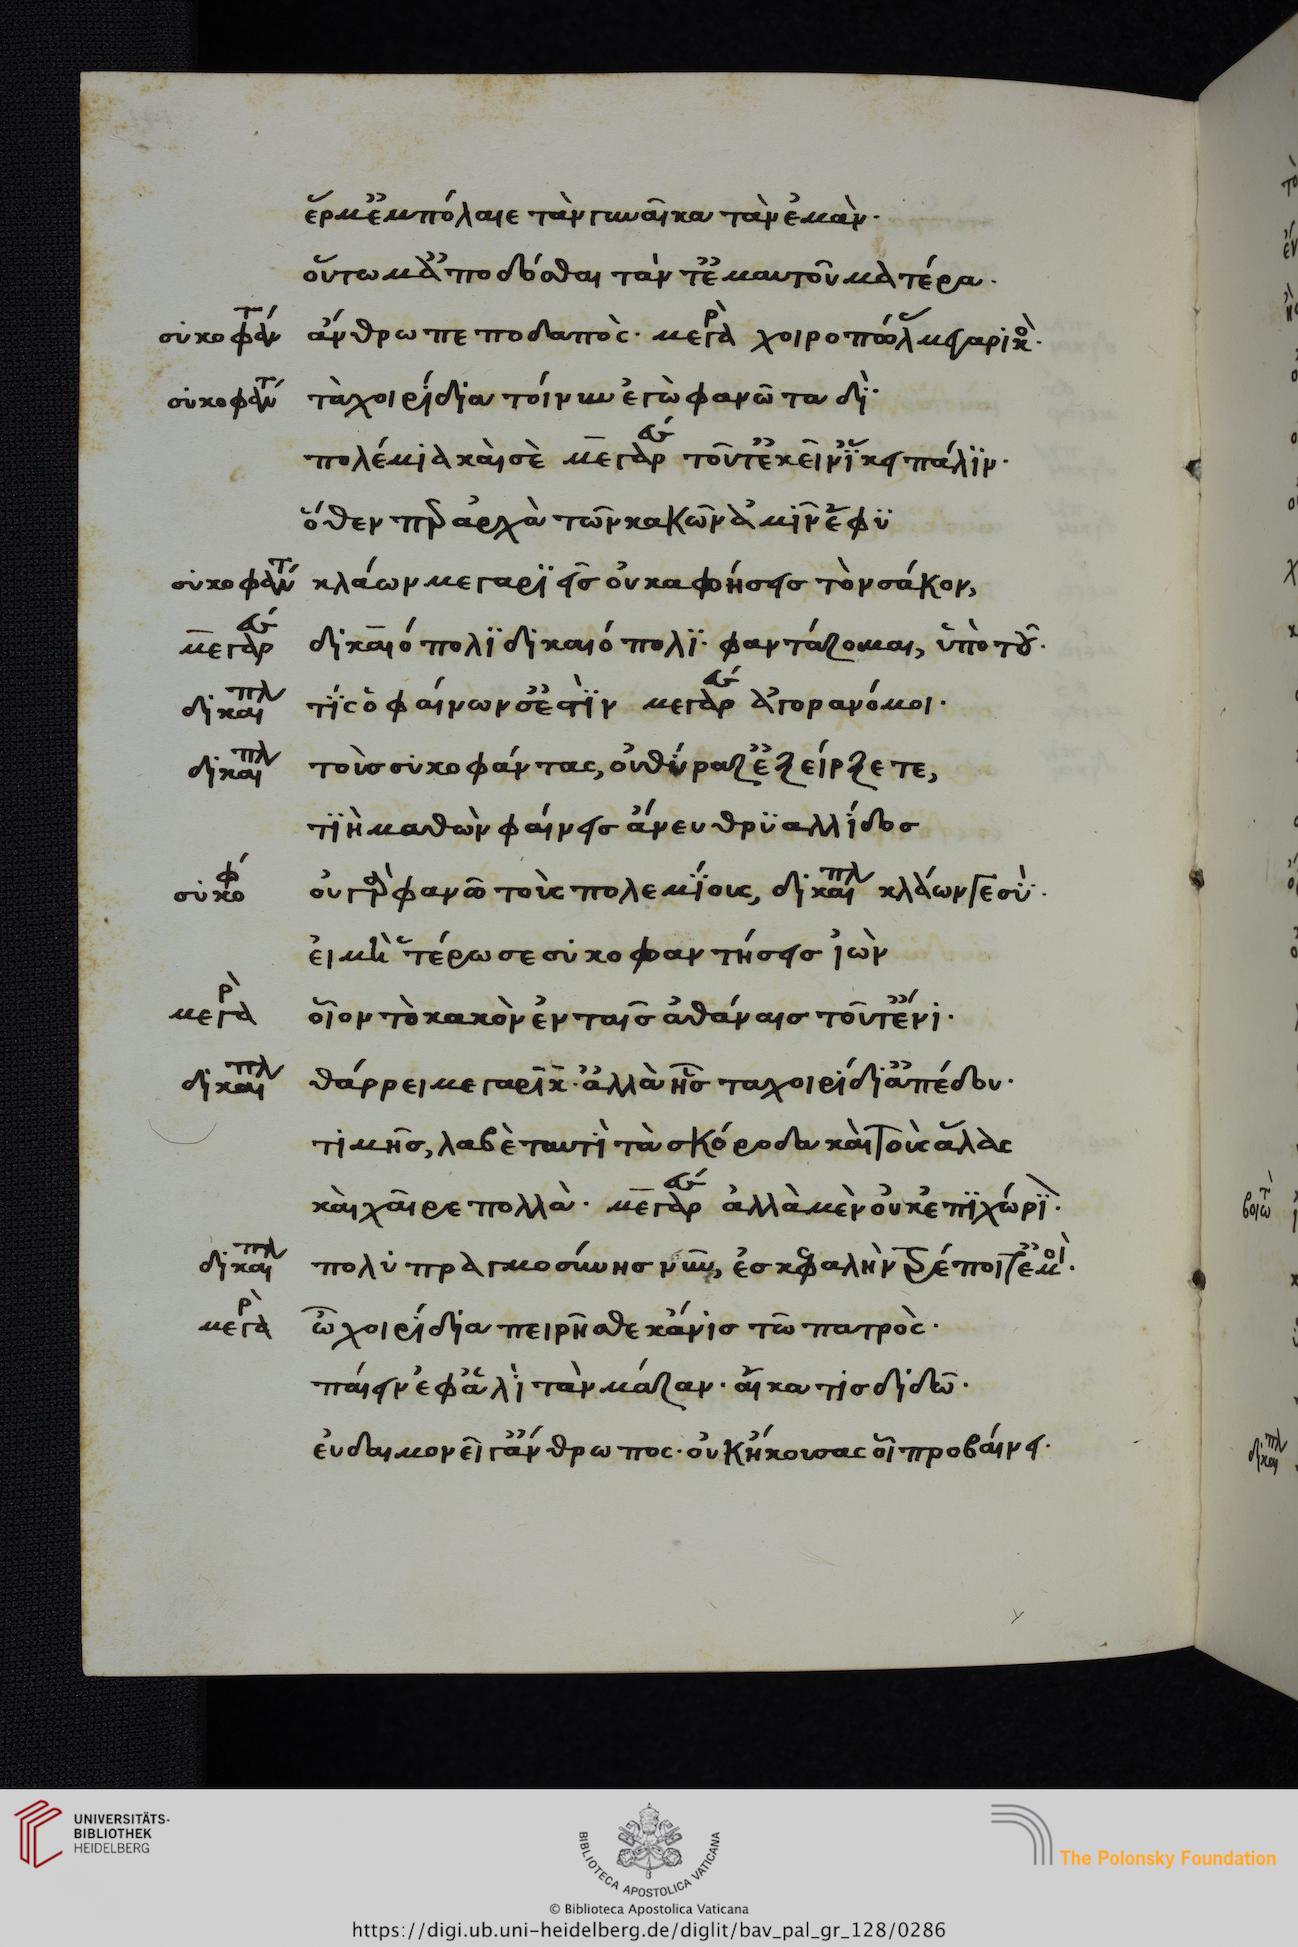 ἑρμἐμπόλαιε τὰν γυναῖκα τὰν ἐμὰν·
οὕτω μἀποδόσθαι τάν τ᾽ ἐμαυτοῦ ματέρα·
συκοφάντ ἄνθρωπε ποδαπὸς· μεγαρ χοιροπώλης μεγαρικὸ·
συκοφάντ τὰ χοιρίδια τοίνυν ἐγὼ φανῶ ταδὶ·
πολέμια καὶ σὲ μεγαρ τοῦτ᾽ ἐκεῖν᾽ ἵκει πάλιν·
ὅθεν περ ἀρχὰ τῶν κακῶν ἁμῖν ἔφυ
συκοφάντ κλάων μεγαριεῖς οὐκ ἀφήσεις τὸν σάκον,
μεγαρ δικαιόπολι δικαιόπολι· φαντάζομαι, ὑπό του·
δικαιπλ τίς ὁ φαίνων σ᾽ ἐστὶν μεγαρ ἀγορανόμοι·
δικαιπλ τοὺς συκοφάντας, οὐ θύραζ᾽ ἐξείρξετε,
τί ἢ μαθὼν φαίνεις ἄνευ θρυαλλίδος
συκοφ οὐ γὰρ φανῶ τοὺς πολεμίους, δικαιπλ κλάων γε σὺ·
εἰ μὴ ἑτέρωσε συκοφαντήσεις ἰὼν
μεγαρ οἷον τὸ κακὸν ἐν ταῖς ἀθάναις τοῦτ᾽ ἔνι·
δικαιπλ θάρρει μεγαρικ· ἀλλὰ ἧς τα χοιρίδι᾽ ἀπέδου·
τιμῆς, λαβὲ ταυτὶ τὰ σκόροδα καὶ τοὺς ἅλας
καὶ χαῖρε πολλὰ· μεγαρ ἀλλὰ μὲν οὐκ ἐπιχώρι·
δικαιπλ πολυπραγμοσύνης νυν, ἐς κεφαλὴν τρέποιτ᾽ ἐμοὶ·
μεγαρ ὦ χοιρίδια πειρῆσθε κἄνις τῶ πατρὸς·
παίειν ἐφ᾽ ἁλὶ τὰν μάζαν· αἴκα τις διδῶ·
εὐδαιμονεῖ γ᾽ ἄνθρωπος· οὐκ ἤκουσας οἷ προβαίνει·
βοιωτ
δικαιπλ
UNIVERSITÄTS-
BIBLIOTHEK
HEIDELBERG
BIBLIOTECA APOSTOLICA VATICANA
The Polonsky Foundation
© Biblioteca Apostolica Vaticana
https://digi.ub.uni-heidelberg.de/diglit/bav_pal_gr_128/0286